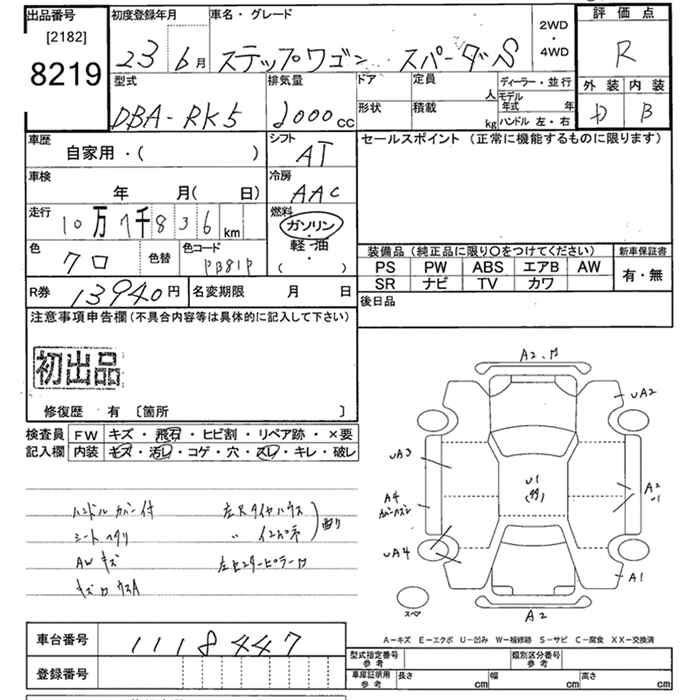 出品番号
[2182]
8219
初度登録年月
23 6月
車名・グレード
ステップワゴン スパーダS
2WD
・
4WD
評価点
R
外装 内装
D B
型式
DBA-RK5
排気量
2000cc
ドア
形状
定員
人
積載
kg
ディーラー・並行
モデル年式 年
ハンドル 左・右
車歴
自家用・( )
シフト
AT
車検
年 月( 日)
冷房
AAC
走行
10万7千836km
燃料
ガソリン
・
軽・油
( )
色
クロ
色替
色コード
PB81P
R券
13940円
名変期限 月 日
セールスポイント(正常に機能するものに限ります)
装備品(純正品に限り○をつけてください)
新車保証書
PS PW ABS エアB AW
SR ナビ TV カワ
有・無
後日品
注意事項申告欄(不具合内容等は具体的に記入して下さい)
初出品
修復歴 有 〔箇所 〕
検査員記入欄
FW キズ・飛石・ヒビ割・リペア跡・×要
内装 キズ・汚レ・コゲ・穴・スレ・キレ・破レ
ハンドルカバー付
シートヘタリ
AWキズ
左Rタイヤハウス
〃 インパネ
左センターピラー
A2
UA2
UA3
U1
A4
A2
UA4
A1
A2
スペア
A-キズ E-エクボ U-凹み W-補修跡 S-サビ C-腐食 XX-交換済
車台番号
1118447
登録番号
型式指定番号
参考
類別区分番号
参考
車庫証明用
参考
長さ cm
幅 cm
高さ cm